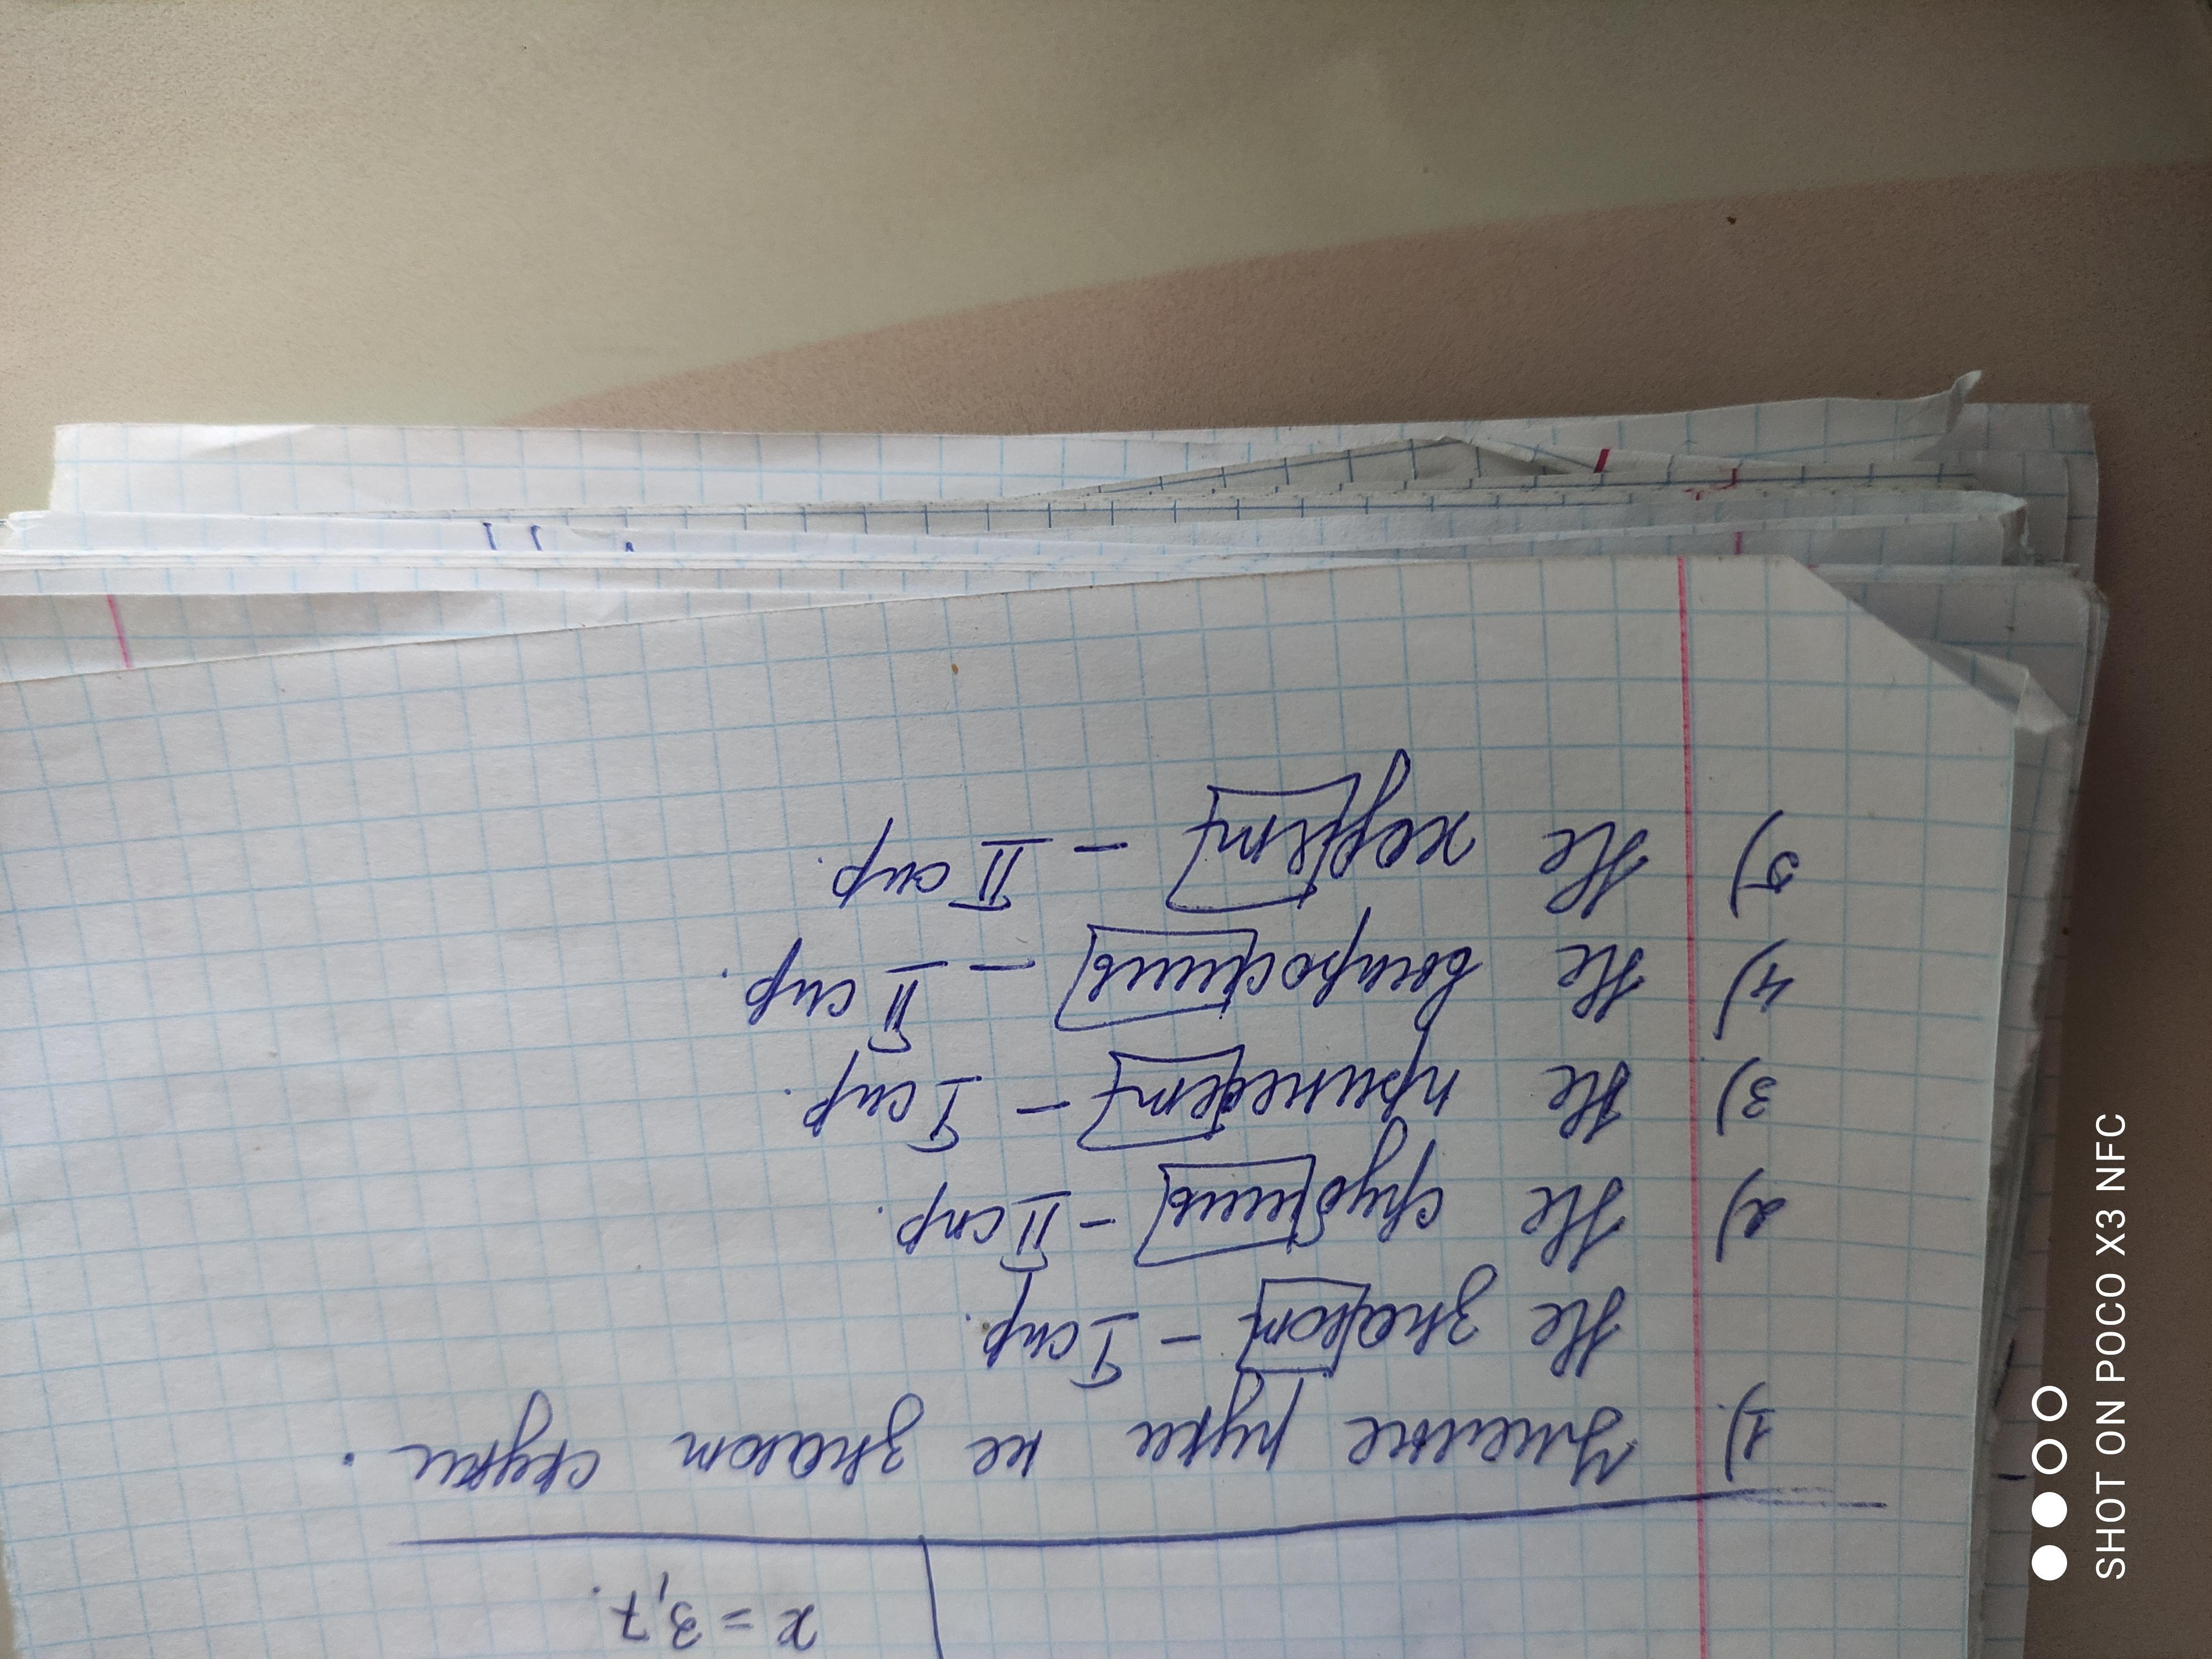 x = 3,7.
1). Умелые руки не знают скуки.
Не знают - I спр.
2) Не срубишь - II спр.
3) Не принесёт - I спр.
4) Не выпросишь - II спр.
5) Не
- II спр.
SHOT ON POCO X3 NFC